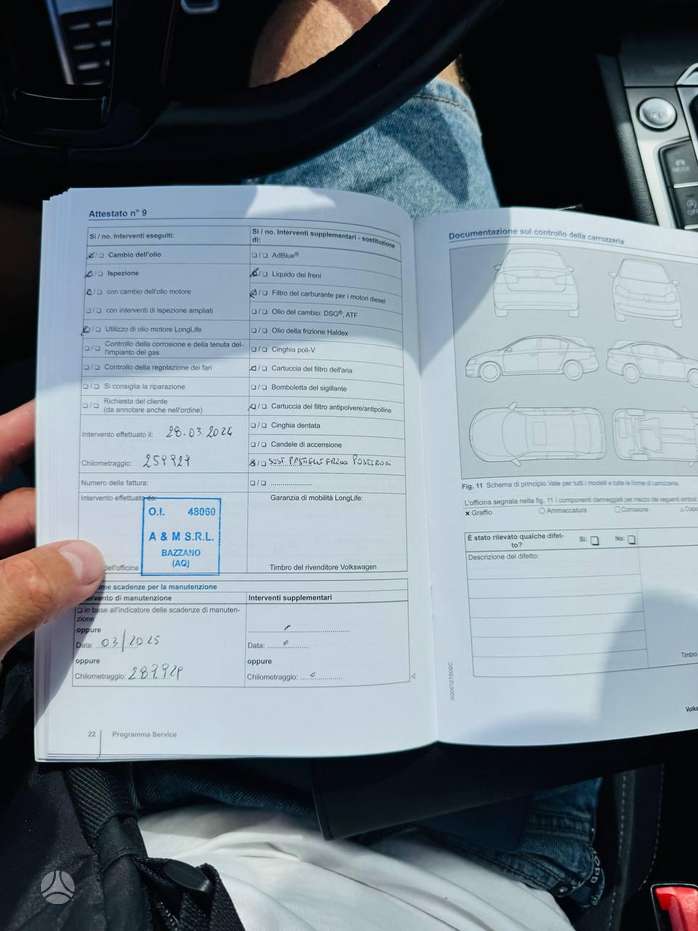 Attestato n° 9
Sì / no. Interventi eseguiti:
❏ / ❏ Cambio dell'olio
❏ / ❏ Ispezione
❏ / ❏ con cambio dell'olio motore
❏ / ❏ con interventi di ispezione ampliati
❏ / ❏ Utilizzo di olio motore LongLife
❏ / ❏ Controllo della corrosione e della tenuta dell'impianto del gas
❏ / ❏ Controllo della regolazione dei fari
❏ / ❏ Si consiglia la riparazione
❏ / ❏ Richiesta del cliente
(da annotare anche nell'ordine)
Intervento effettuato il: 28.03.2024
Chilometraggio: 259929
Numero della fattura:
Intervento effettuato da:
O.I. 48060
A & M S.R.L.
BAZZANO
(AQ)
dell'officina
Sì / no. Interventi supplementari - sostituzione di:
❏ / ❏ AdBlue®
❏ / ❏ Liquido dei freni
❏ / ❏ Filtro del carburante per i motori diesel
❏ / ❏ Olio del cambio: DSG®, ATF
❏ / ❏ Olio della frizione Haldex
❏ / ❏ Cinghia poli-V
❏ / ❏ Cartuccia del filtro dell'aria
❏ / ❏ Bomboletta del sigillante
❏ / ❏ Cartuccia del filtro antipolvere/antipolline
❏ / ❏ Cinghia dentata
❏ / ❏ Candele di accensione
❏ / ❏ SOST PASTIGLIE FRENO POSTERIORI
❏ / ❏ ....................
Garanzia di mobilità LongLife:
Timbro del rivenditore Volkswagen
me scadenze per la manutenzione
Intervento di manutenzione
❏ in base all'indicatore delle scadenze di manutenzione
oppure
Data: 03/2025
oppure
Chilometraggio: 289929
Interventi supplementari
Data:
oppure
Chilometraggio:
22 Programma Service
Documentazione sul controllo della carrozzeria
Fig. 11 Schema di principio. Vale per tutti i modelli e tutte le forme di carrozzeria.
L'officina segnala nella fig. 11 i componenti danneggiati per mezzo dei seguenti simboli
× Graffio ○ Ammaccatura ❏ Corrosione
È stato rilevato qualche difetto?
Sì: ❏ No: ❏
Descrizione del difetto:
Timbro